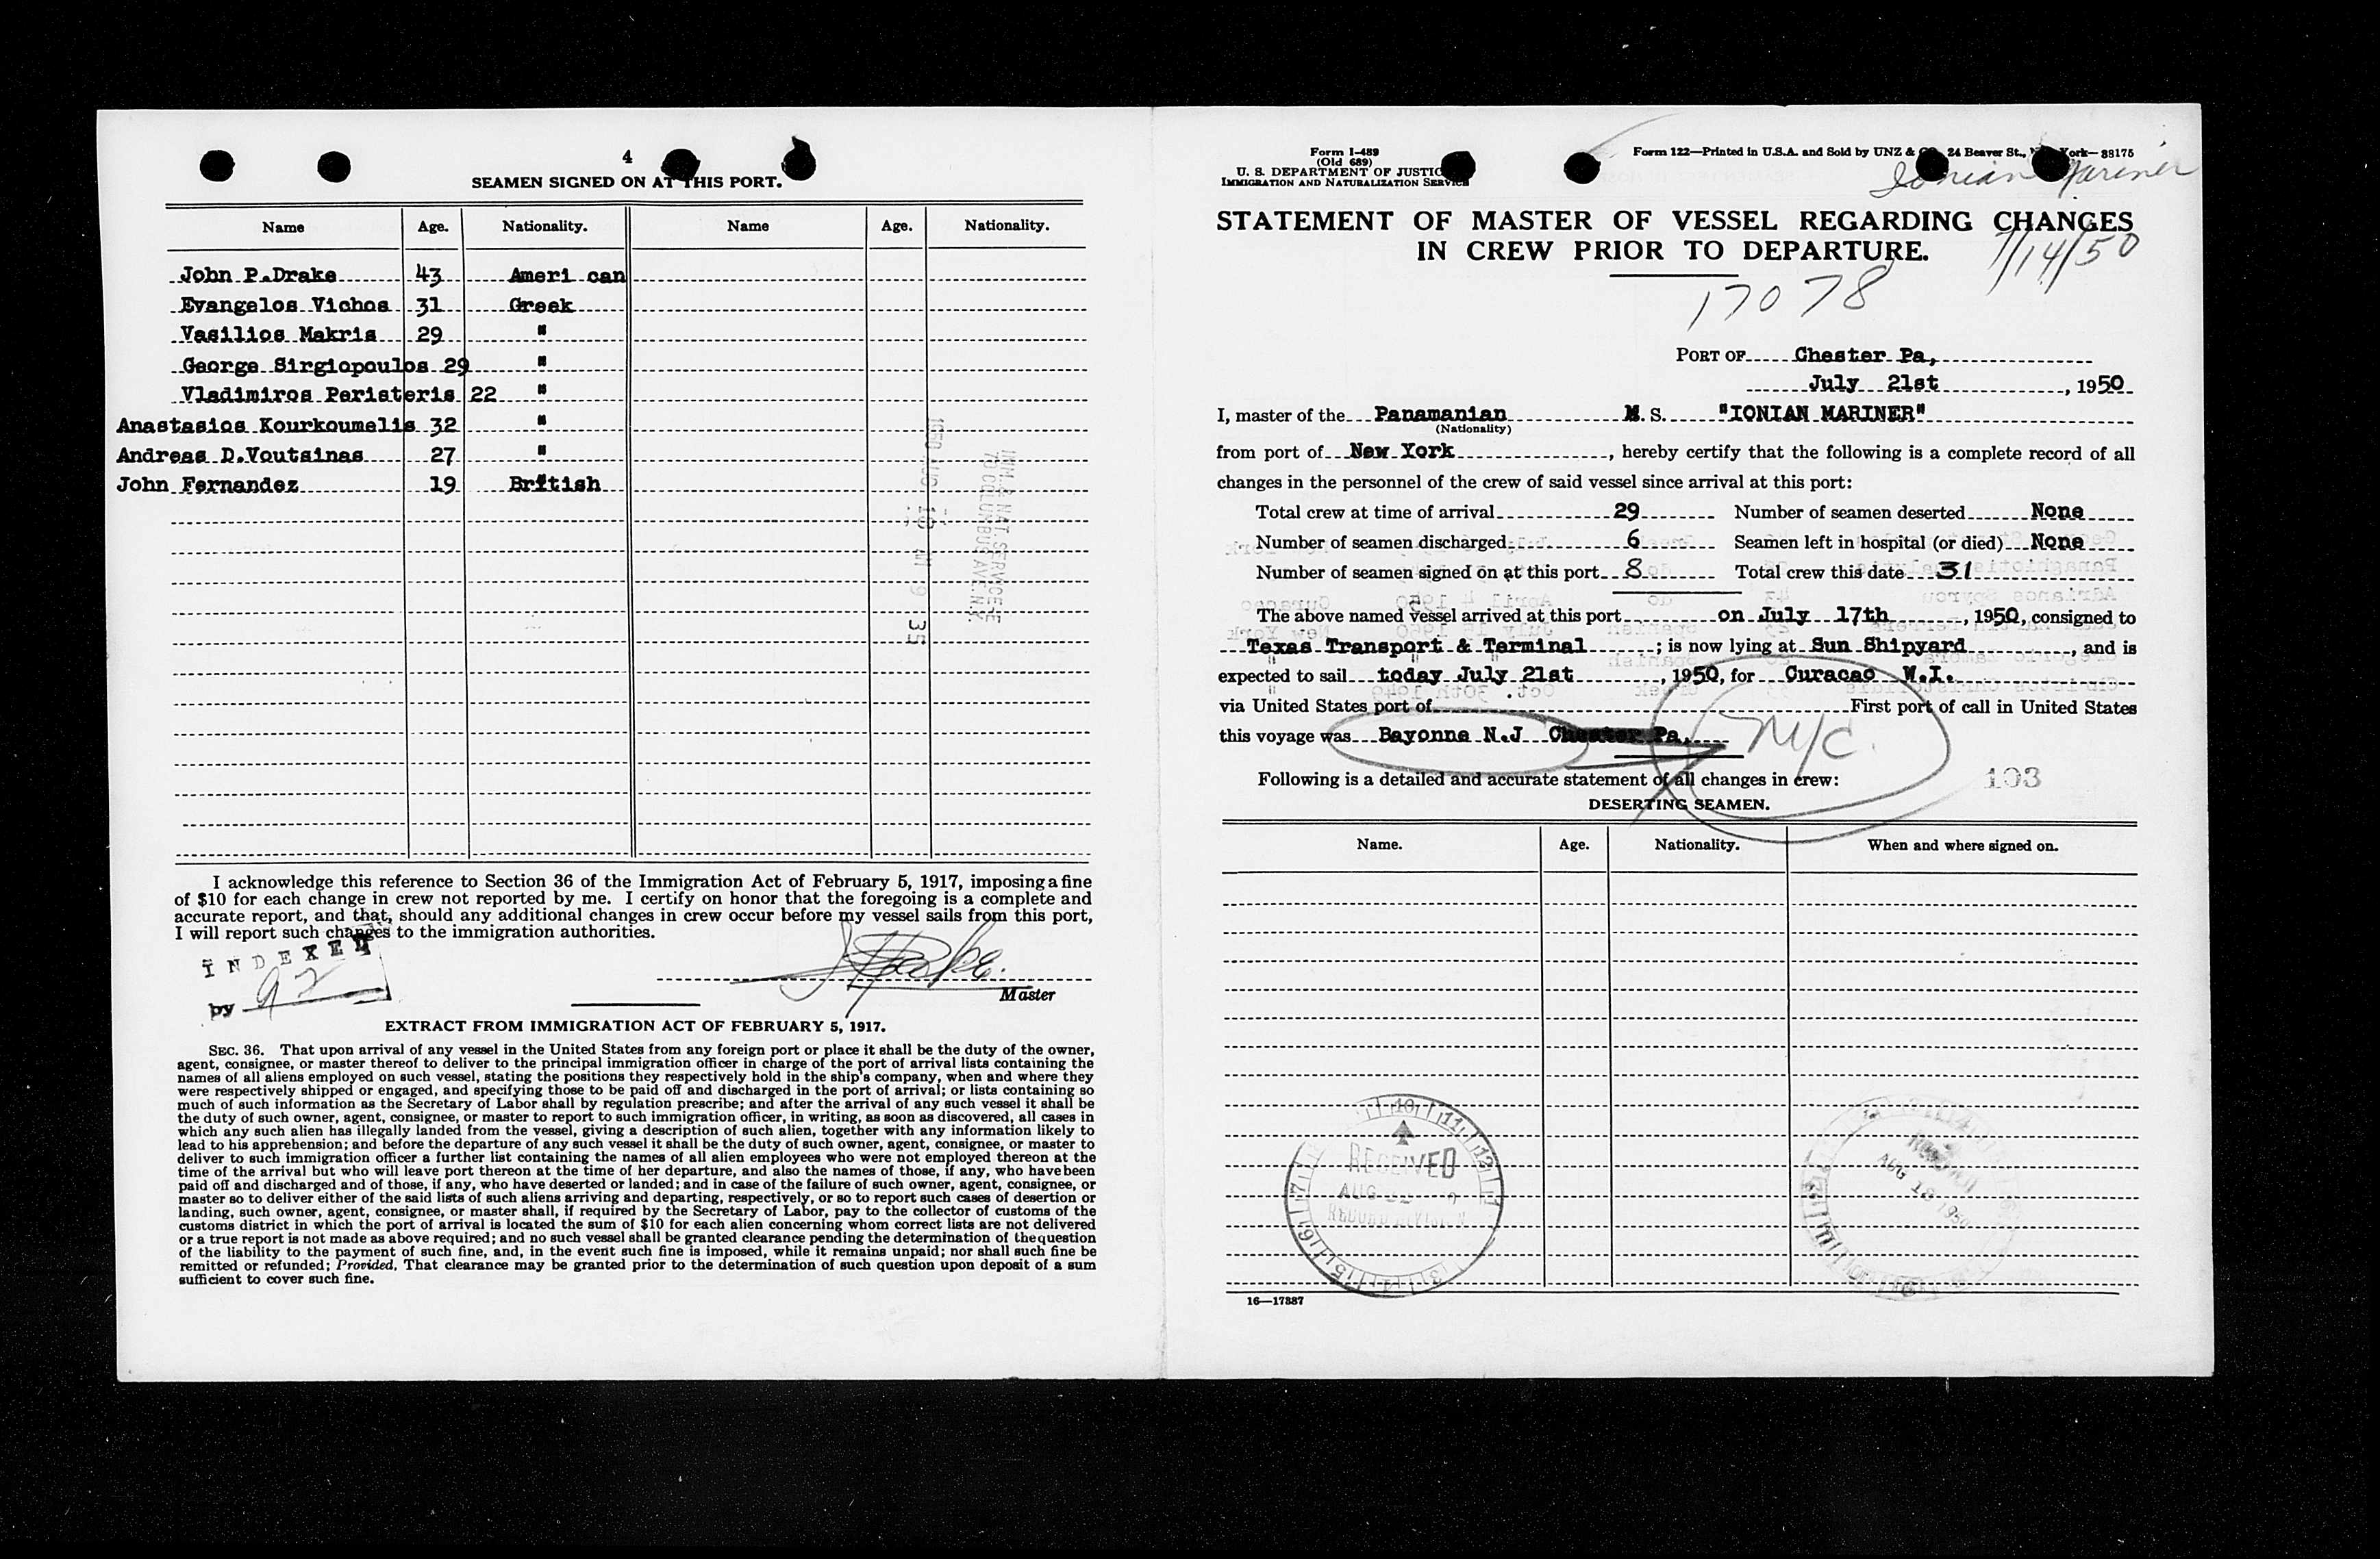 4
SEAMEN SIGNED ON AT THIS PORT.
Name Age. Nationality. Name Age. Nationality.
John P.Drake 43 Ameri can
Evangelos Vichos 31 Greek
Vasilios Makris 29 "
George Sirgiopoulos 29 "
Vladimiros Peristeris 22 "
Anastasios Kourkoumelis 32 "
Andreas D.Voutsinas 27 "
John Fernandez 19 British
I acknowledge this reference to Section 36 of the Immigration Act of February 5, 1917, imposing a fine
of $10 for each change in crew not reported by me. I certify on honor that the foregoing is a complete and
accurate report, and that, should any additional changes in crew occur before my vessel sails from this port,
I will report such changes to the immigration authorities.
INDEXED
by
Master
EXTRACT FROM IMMIGRATION ACT OF FEBRUARY 5, 1917.
SEC. 36. That upon arrival of any vessel in the United States from any foreign port or place it shall be the duty of the owner,
agent, consignee, or master thereof to deliver to the principal immigration officer in charge of the port of arrival lists containing the
names of all aliens employed on such vessel, stating the positions they respectively hold in the ship's company, when and where they
were respectively shipped or engaged, and specifying those to be paid off and discharged in the port of arrival; or lists containing so
much of such information as the Secretary of Labor shall by regulation prescribe; and after the arrival of any such vessel it shall be
the duty of such owner, agent, consignee, or master to report to such immigration officer, in writing, as soon as discovered, all cases in
which any such alien has illegally landed from the vessel, giving a description of such alien, together with any information likely to
lead to his apprehension; and before the departure of any such vessel it shall be the duty of such owner, agent, consignee, or master to
deliver to such immigration officer a further list containing the names of all alien employees who were not employed thereon at the
time of the arrival but who will leave port thereon at the time of her departure, and also the names of those, if any, who have been
paid off and discharged and of those, if any, who have deserted or landed; and in case of the failure of such owner, agent, consignee, or
master so to deliver either of the said lists of such aliens arriving and departing, respectively, or so to report such cases of desertion or
landing, such owner, agent, consignee, or master shall, if required by the Secretary of Labor, pay to the collector of customs of the
customs district in which the port of arrival is located the sum of $10 for each alien concerning whom correct lists are not delivered
or a true report is not made as above required; and no such vessel shall be granted clearance pending the determination of the question
of the liability to the payment of such fine, and, in the event such fine is imposed, while it remains unpaid; nor shall such fine be
remitted or refunded; Provided, That clearance may be granted prior to the determination of such question upon deposit of a sum
sufficient to cover such fine.
Form I-489
(Old 689)
U. S. DEPARTMENT OF JUSTICE
IMMIGRATION AND NATURALIZATION SERVICE
Form 122—Printed in U.S.A. and Sold by UNZ & CO., 24 Beaver St., New York—88175
Ionian Mariner
STATEMENT OF MASTER OF VESSEL REGARDING CHANGES
IN CREW PRIOR TO DEPARTURE.
7/14/50
17078
PORT OF Chester Pa,
July 21st, 1950
I, master of the Panamanian M. S. "IONIAN MARINER"
(Nationality)
from port of New York, hereby certify that the following is a complete record of all
changes in the personnel of the crew of said vessel since arrival at this port:
Total crew at time of arrival 29 Number of seamen deserted None
Number of seamen discharged 6 Seamen left in hospital (or died) None
Number of seamen signed on at this port 8 Total crew this date 31
The above named vessel arrived at this port on July 17th, 1950, consigned to
Texas Transport & Terminal; is now lying at Sun Shipyard, and is
expected to sail today July 21st, 1950, for Curacao W.I.
via United States port of First port of call in United States
this voyage was Bayonne N.J Chester Pa.
NYC.
Following is a detailed and accurate statement of all changes in crew:
103
DESERTING SEAMEN.
Name. Age. Nationality. When and where signed on.
RECEIVED
AUG
RECORD DIVISION
AUG 18 1950
16—17387